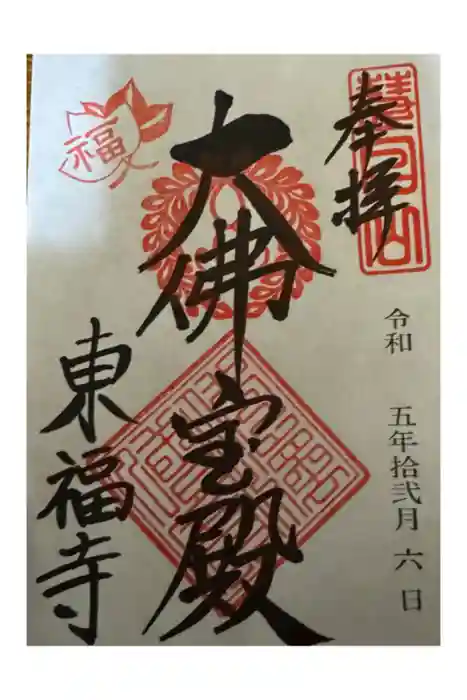 奉拝
慧日山
令和 五年拾弐月六日
大佛宝殿
福
東福寺